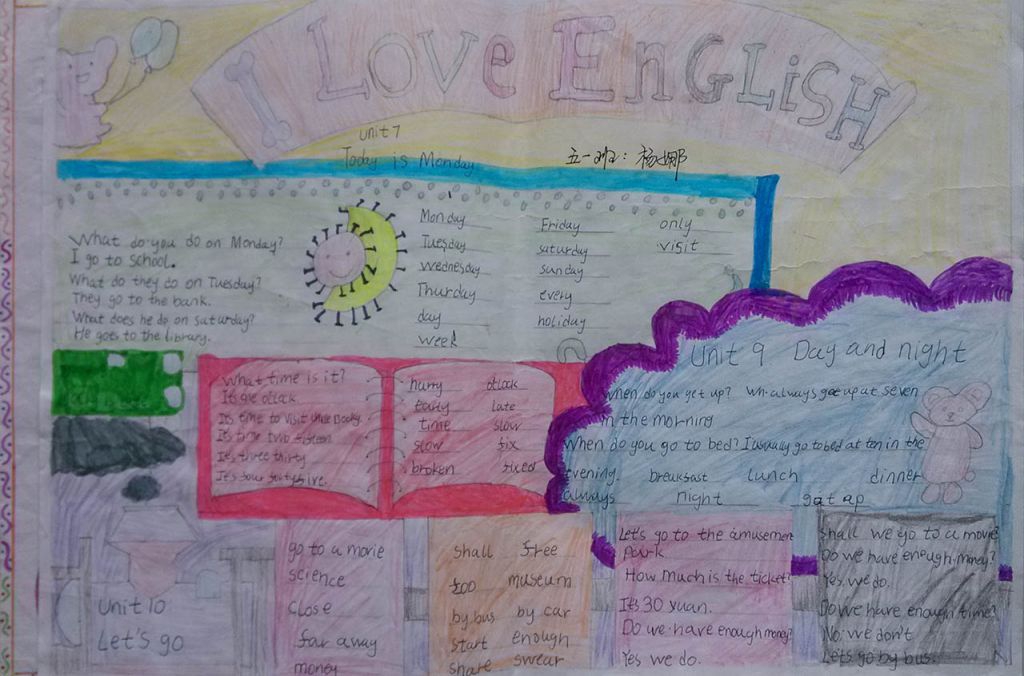 I LOVE ENGLISH
Unit 7
Today is Monday
五一班: 杨娜
What do you do on Monday?
I go to school.
What do they do on Tuesday?
They go to the bank.
What does he do on saturday?
He goes to the library.
Monday Friday only
Tuesday saturday visit
Wednesday sunday
Thurday every
day holiday
week
What time is it?
It's two fifteen
It's three thirty
hurry oclock
early late
time slow
slow fix
broken fixed
Unit 9 Day and night
When do you get up? always up at seven
in the morning
When do you go to bed? I usually go to bed at ten in the
evening. breakfast lunch dinner
always night get ap
Unit 10
Let's go
go to a movie
science
close
far away
money
shall free
zoo museum
by bus by car
start enough
share swear
Let's go to the amusement
park
How much is the ticket?
It's 30 yuan.
Do we have enough money?
Yes we do.
Shall we go to a movie
Do we have enough money?
Yes. we do.
Do we have enough time?
No. we don't
Let's go by bus.